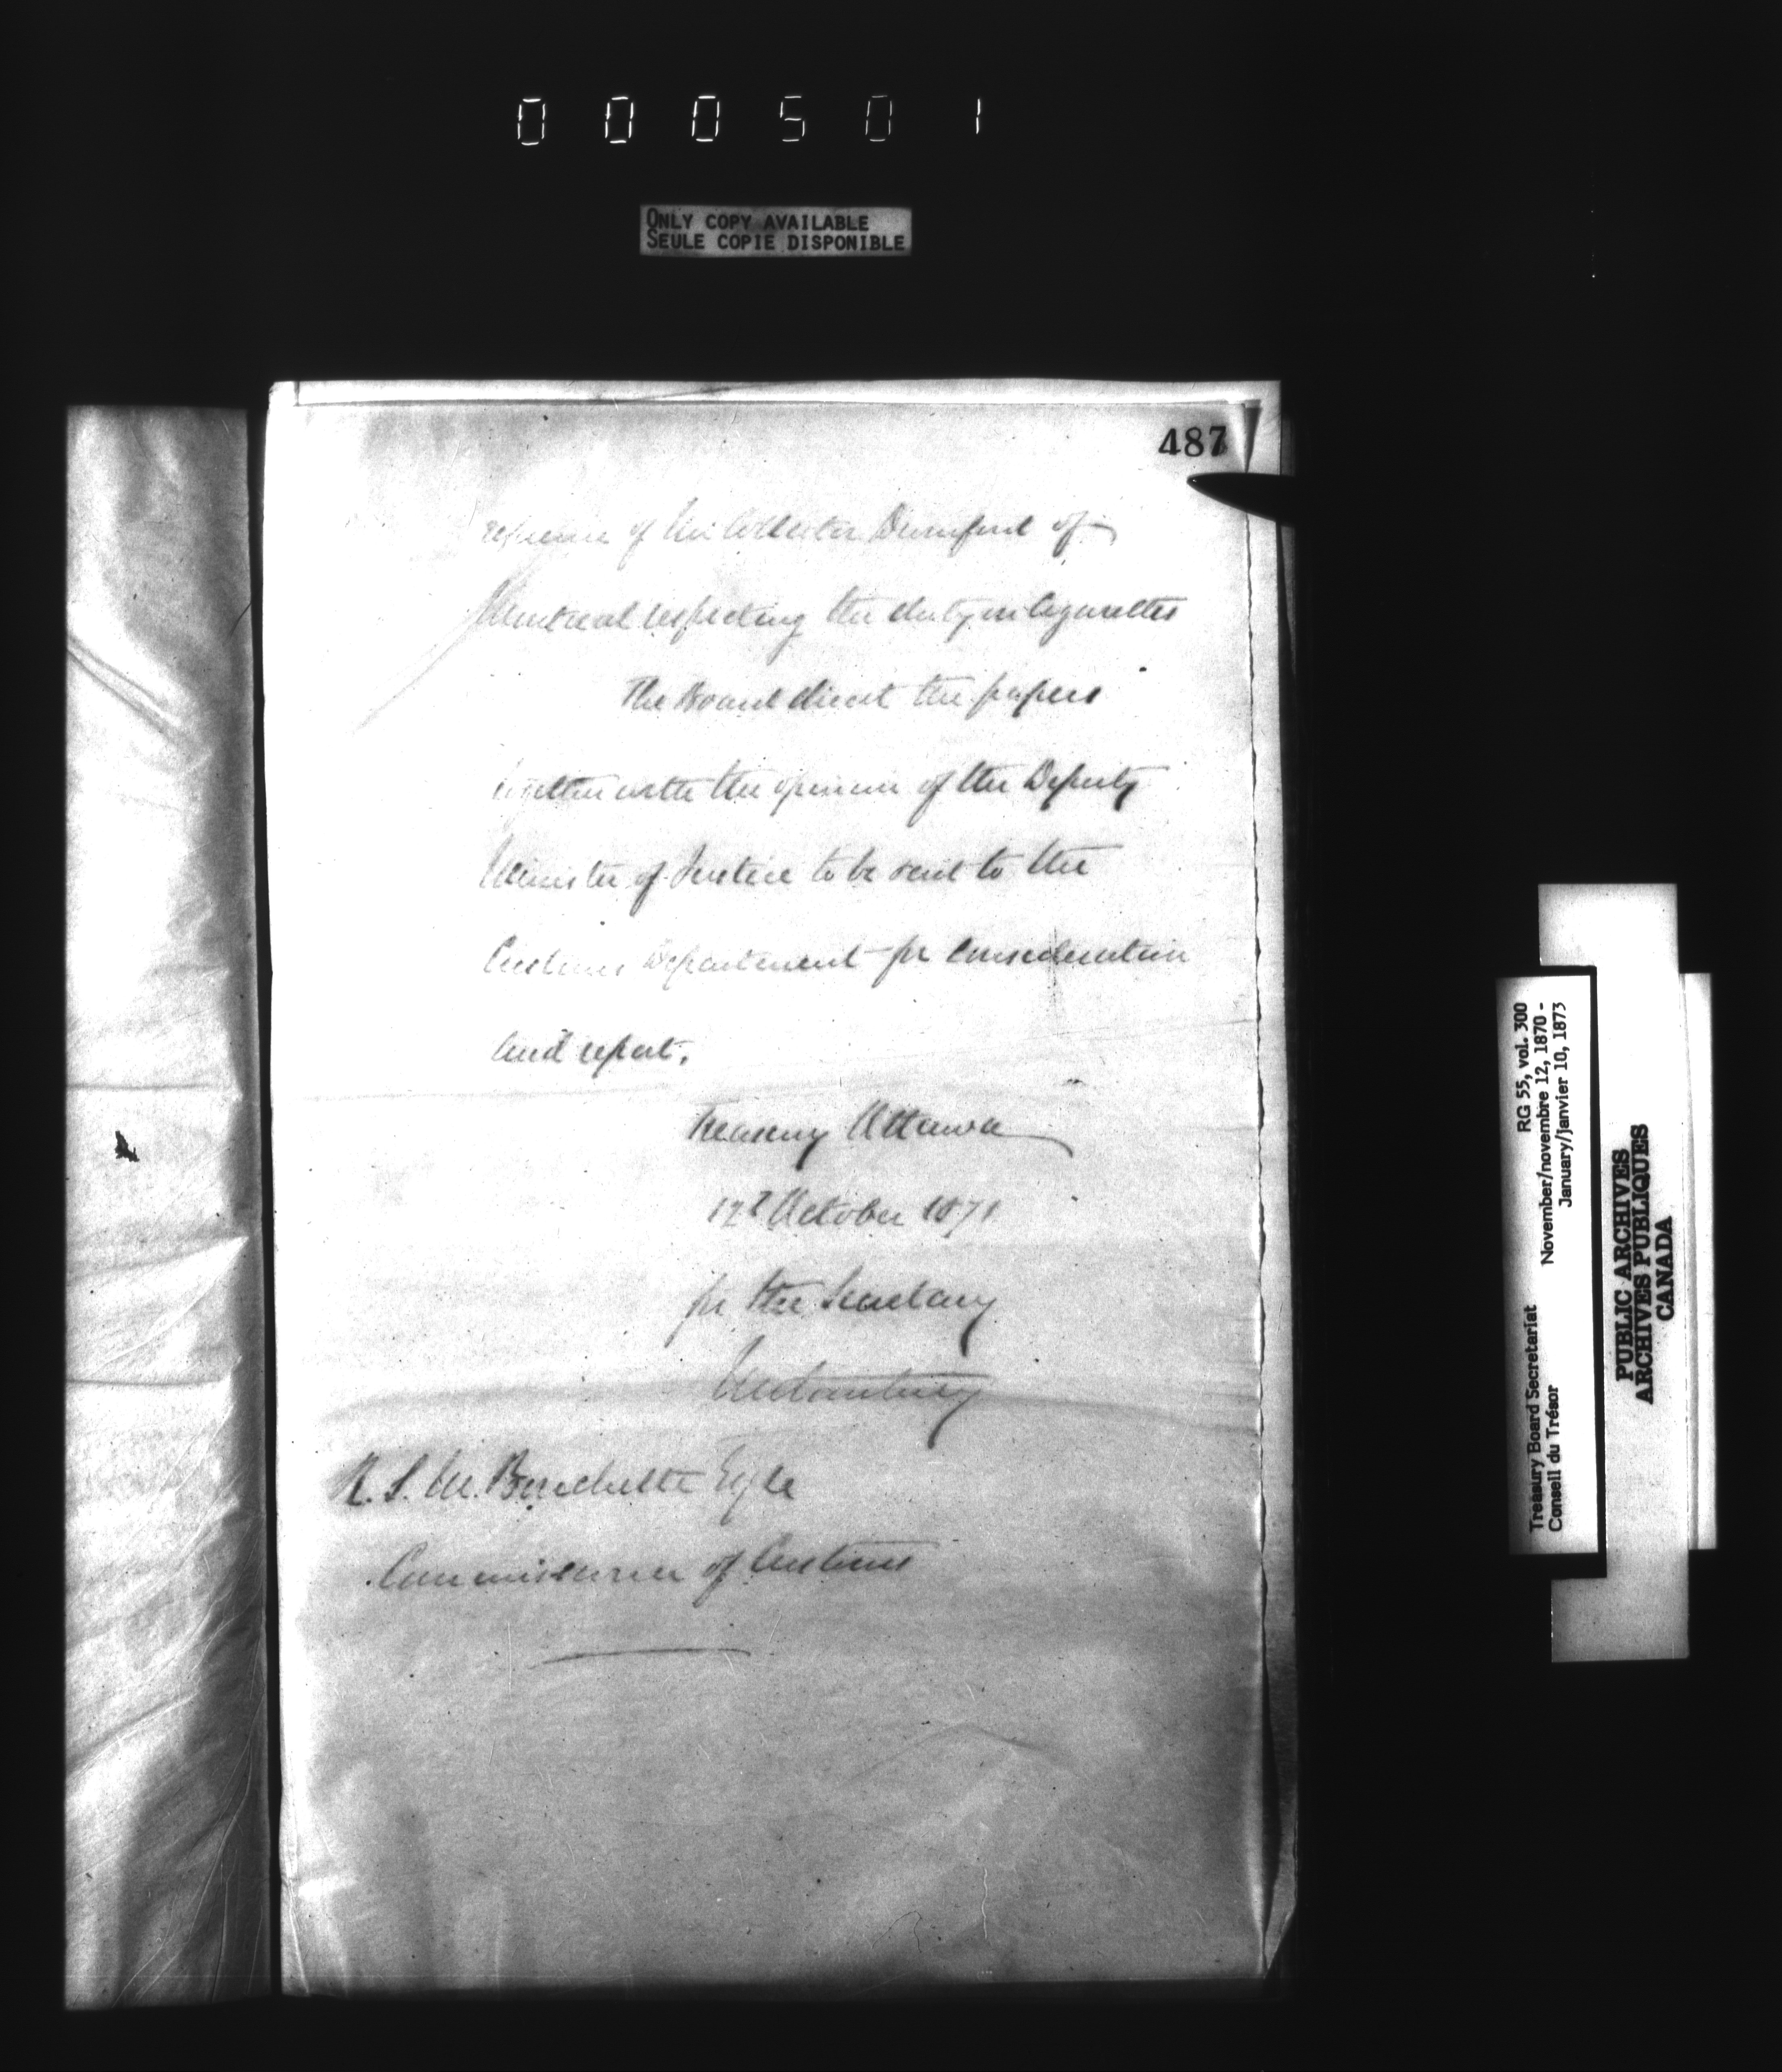 000501
ONLY COPY AVAILABLE
SEULE COPIE DISPONIBLE
487
reference of Collector Durnford of
Montreal respecting the duty on Cigarettes
The Board direct the papers
together with the opinion of the Deputy
Minister of Justice to be sent to the
Customs Department for Consideration
and report.
Treasury Ottawa
12t October 1871
for the Secretary
R. S. M. Bouchette Esqre
Commissioner of Customs
Treasury Board Secretariat RG 55, vol. 300
Conseil du Trésor November/novembre 12, 1870 -
January/janvier 10, 1873
PUBLIC ARCHIVES
ARCHIVES PUBLIQUES
CANADA